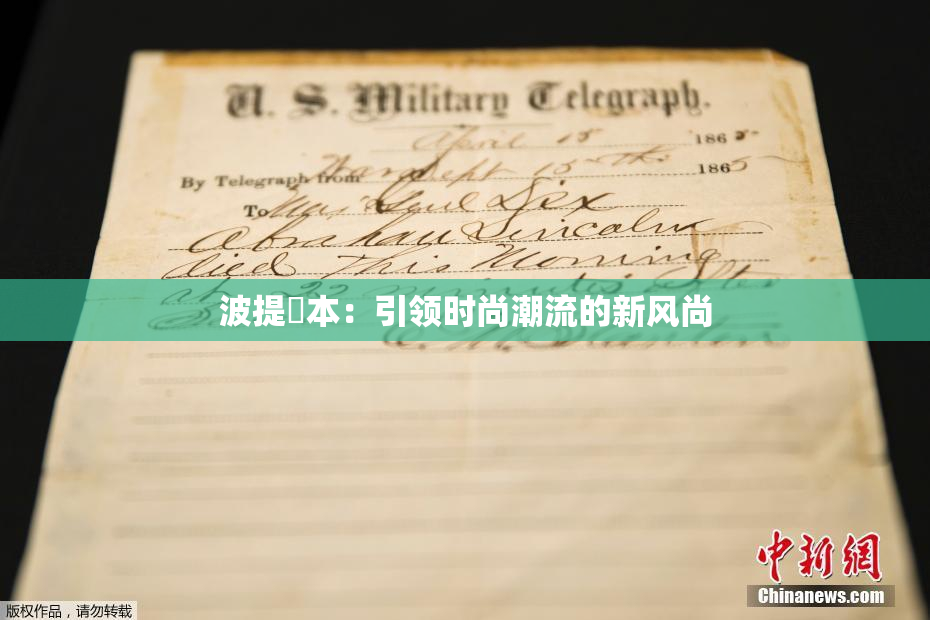 U. S. Military Telegraph.
April 15 1865
By Telegraph from 15th 1865
To Maj Genl Dix
Abraham Lincoln
died This Morning
at 22 minutes after
波提本：引领时尚潮流的新风尚
E. M. Stanton
中新网
Chinanews.com
版权作品，请勿转载